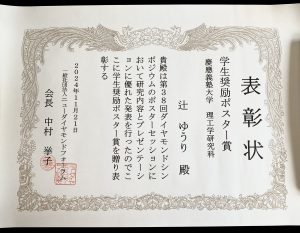 表彰状
学生奨励ポスター賞
慶應義塾大学 理工学研究科
辻 ゆうり 殿
貴殿は第38回ダイヤモンドシン
ポジウムのポスターセッションに
おいて研究内容とプレゼンテーシ
ョンに優れた発表を行ったのでこ
こに学生奨励ポスター賞を贈り表
彰する
2024年11月21日
一般社団法人ニューダイヤモンドフォーラム
会長 中村 挙子